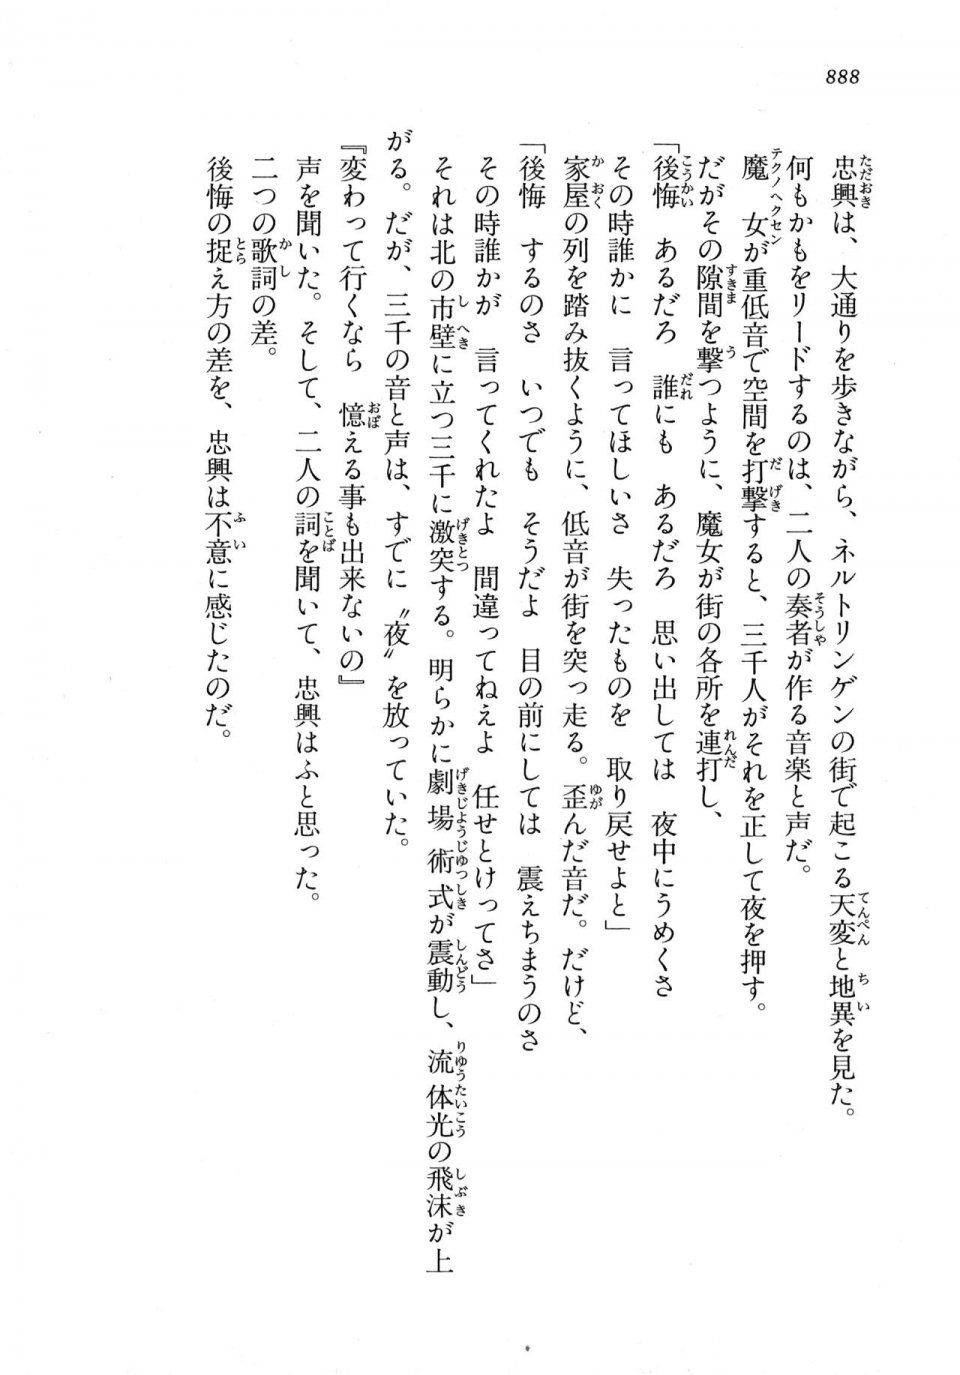 888
忠興は、大通りを歩きながら、ネルトリンゲンの街で起こる天変と地異を見た。
何もかもをリードするのは、二人の奏者が作る音楽と声だ。
魔女が重低音で空間を打撃すると、三千人がそれを正して夜を押す。
だがその隙間を撃つように、魔女が街の各所を連打し、
「後悔　あるだろ　誰にも　あるだろ　思い出しては　夜中にうめくさ
その時誰かに　言ってほしいさ　失ったものを　取り戻せよと」
家屋の列を踏み抜くように、低音が街を突っ走る。歪んだ音だ。だけど、
「後悔　するのさ　いつでも　そうだよ　目の前にしては　震えちまうのさ
その時誰かが　言ってくれたよ　間違ってねえよ　任せとけってさ」
それは北の市壁に立つ三千に激突する。明らかに劇場術式が震動し、流体光の飛沫が上
がる。だが、三千の音と声は、すでに〝夜〟を放っていた。
『変わって行くなら　憶える事も出来ないの』
声を聞いた。そして、二人の詞を聞いて、忠興はふと思った。
二つの歌詞の差。
後悔の捉え方の差を、忠興は不意に感じたのだ。